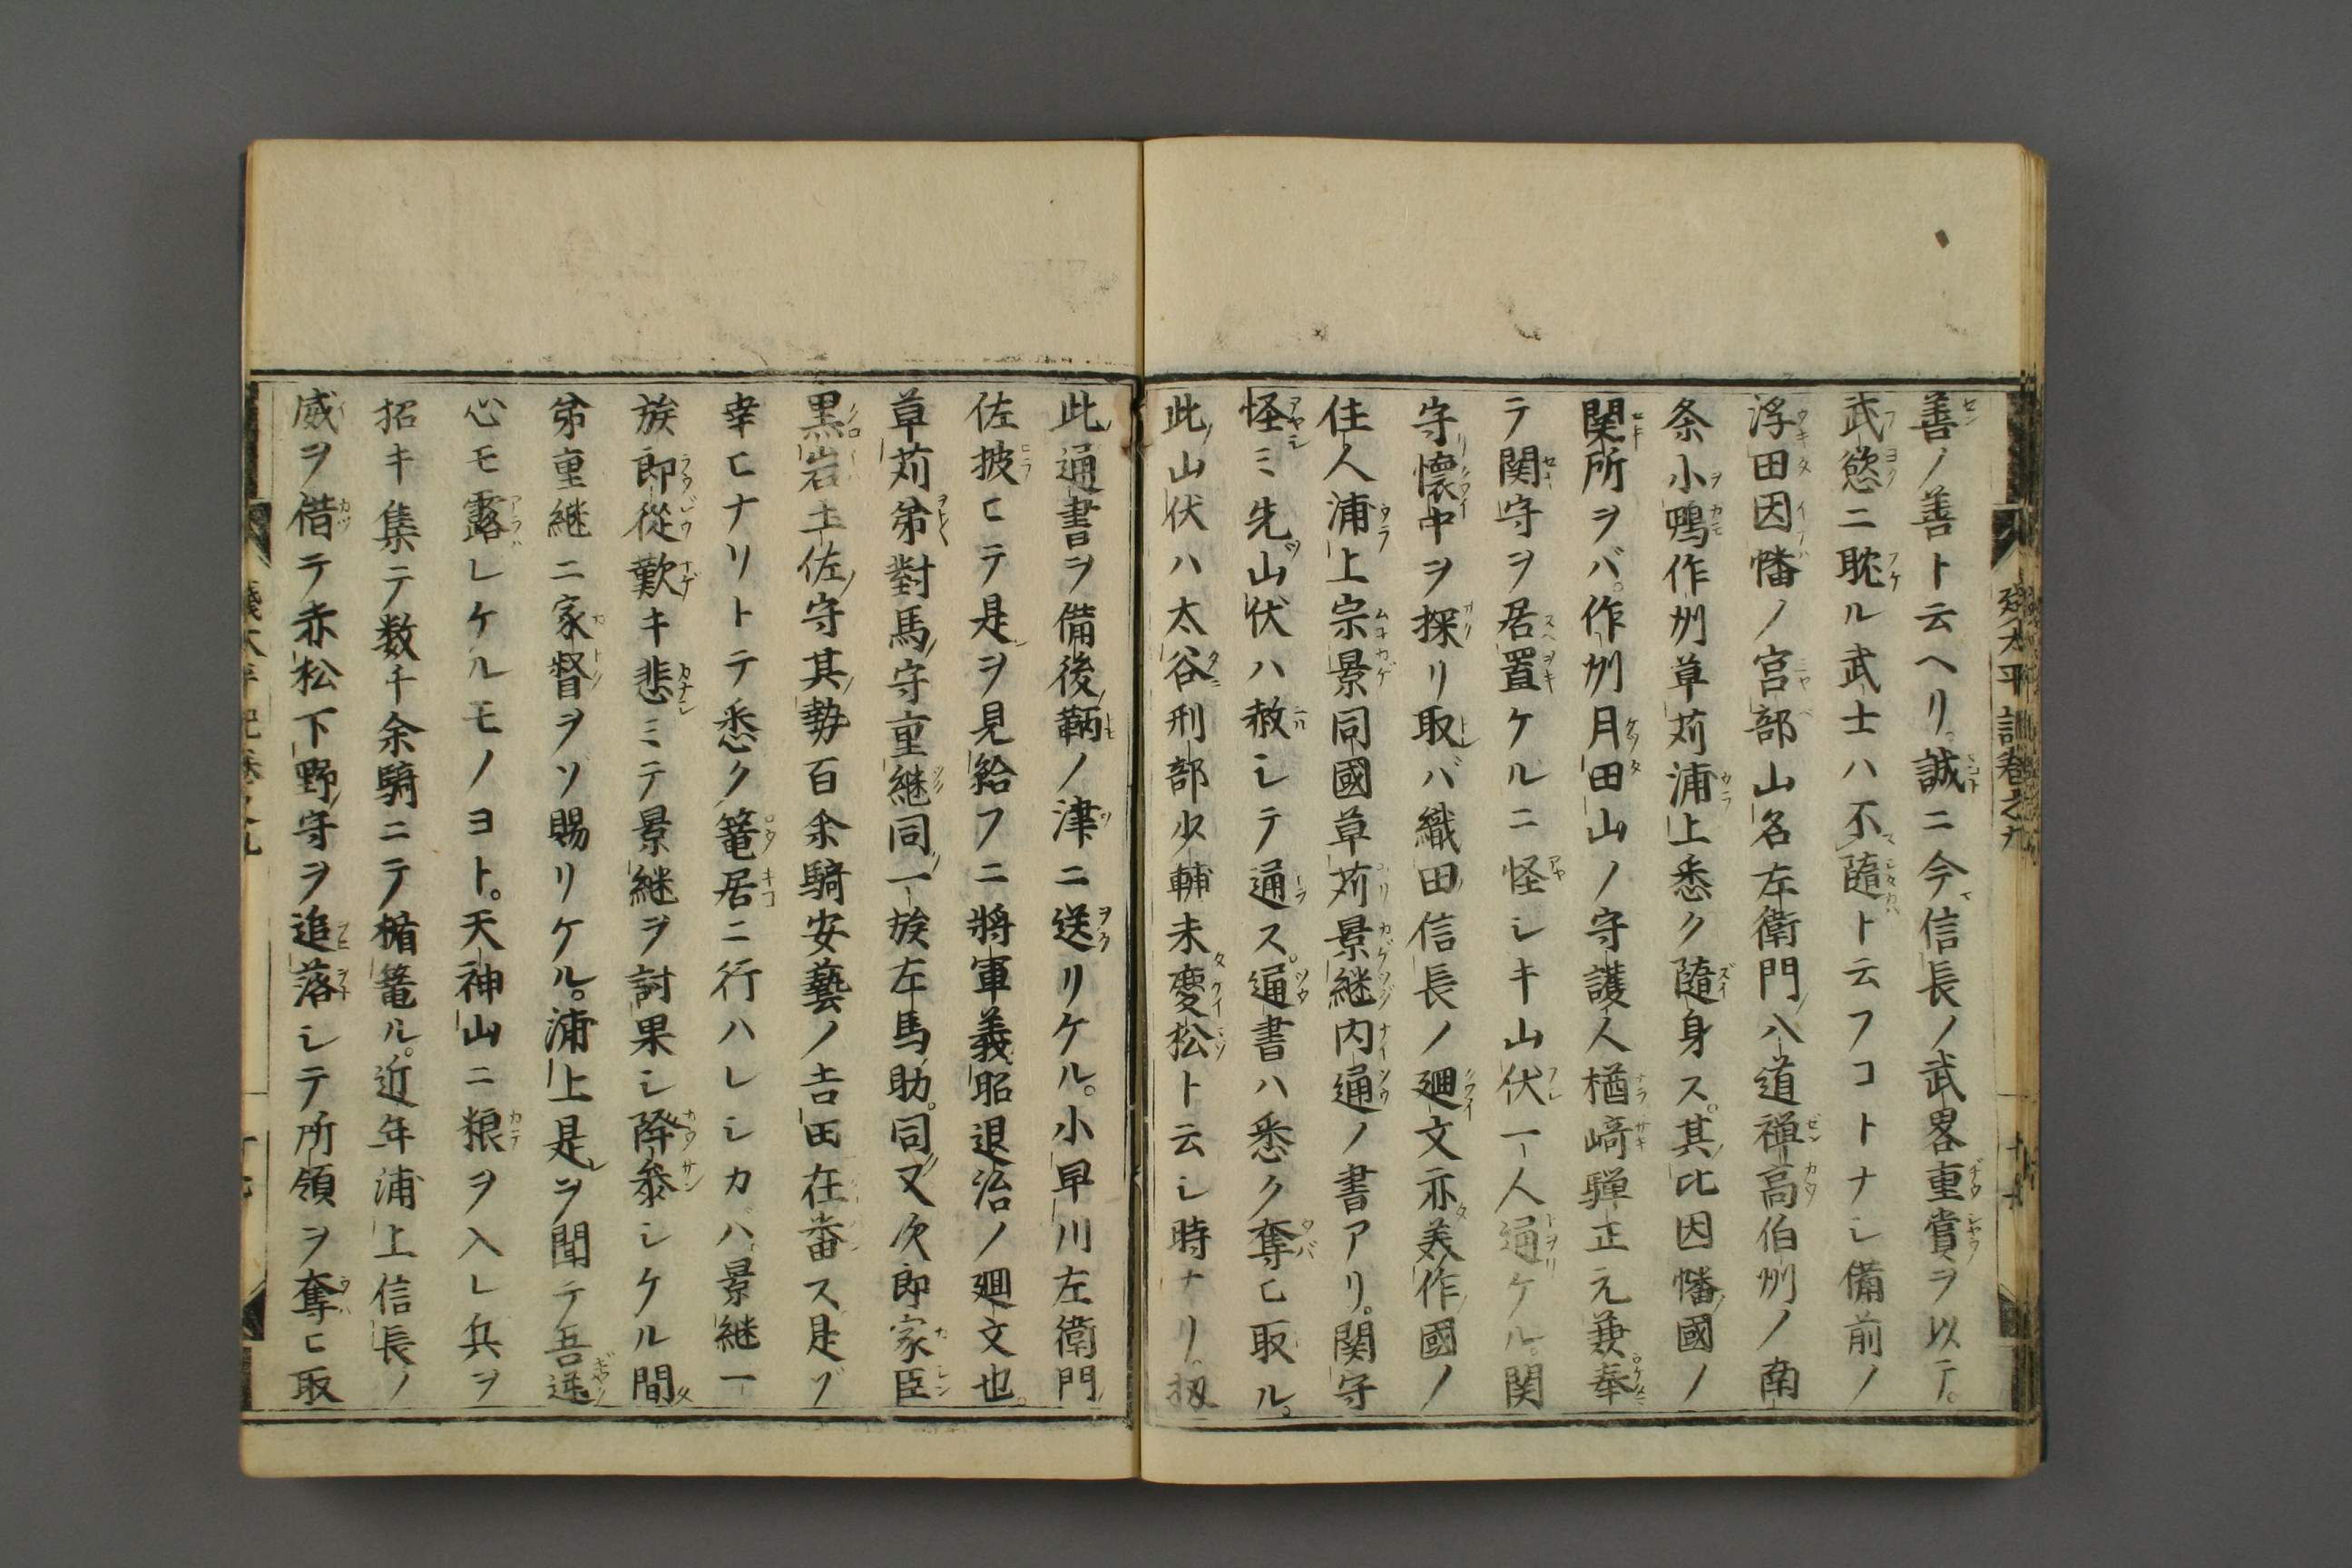 善ノ善ト云ヘリ。誠ニ今信長ノ武畧重賞ヲ以テ。
武慾ニ耽ル武士ハ不隨ト云フコトナシ備前ノ
浮田因幡ノ宮部山名左衛門入道禅高伯州ノ南
条小鴨作州草苅浦上悉ク隨身ス。其比因幡國ノ
関所ヲバ。作州月田山ノ守護人楢﨑彈正元兼奉
テ関守ヲ居置ケルニ怪シキ山伏一人通ケル。関
守懐中ヲ探リ取レバ織田信長ノ廻文亦美作國ノ
住人浦上宗景同國草苅景継内通ノ書アリ。関守
怪ミ先山伏ハ赦シテ通ス。通書ハ悉ク奪ヒ取ル。
此山伏ハ太谷刑部少輔未慶松ト云シ時ナリ。扨
此通書ヲ備後鞆ノ津ニ送リケル。小早川左衛門
佐披ヒテ是ヲ見給フニ將軍義昭退治ノ廻文也。
草苅弟對馬守重継同一族左馬助。同又次郎家臣
黒岩土佐守其勢百余騎安藝ノ吉田在番ス是ヲ
幸ヒナリトテ悉ク篭居ニ行ハレシカバ景継一
族郎從歎キ悲ミテ景継ヲ討果シ降参シケル間
弟重継ニ家督ヲゾ賜リケル。浦上是ヲ聞テ吾逆
心モ露レケルモノヨト。天神山ニ粮ヲ入レ兵ヲ
招キ集テ数千余騎ニテ楯篭ル。近年浦上信長ノ
威ヲ借テ赤松下野守ヲ追落シテ所領ヲ奪ヒ取